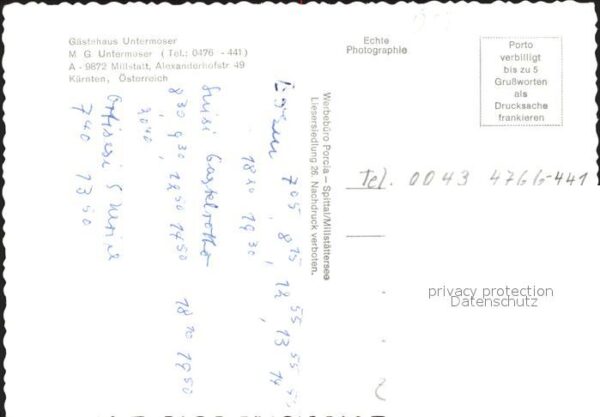 Gästehaus Untermoser
M. G. Untermoser ( Tel.: 0476 - 441 )
A - 9872 Millstatt, Alexanderhofstr 49
Kärnten, Österreich
Echte
Photographie
Porto
verbilligt
bis zu 5
Grußworten
als
Drucksache
frankieren
Werbebüro Porcia – Spittal/Millstättersee
Liesersiedlung 26. Nachdruck verboten.
Tel. 0043 4766-441
705, 815, 12 55, 13 55, 14 55
18 20 19 30
8 30, 9 30, 12 50 17 50 18 20 19 50
20 40
7 40 13 50
privacy protection
Datenschutz